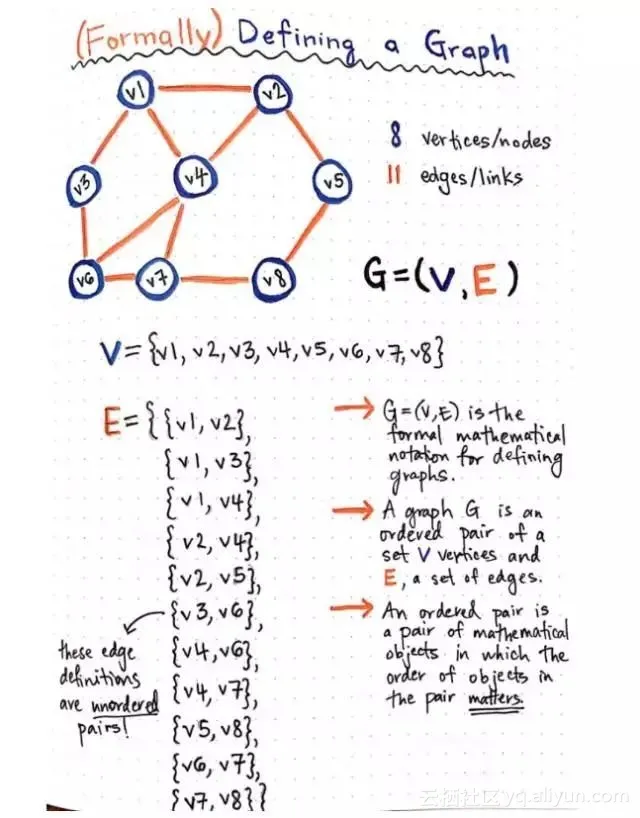 (Formally) Defining a Graph
v1
v2
v3
v4
v5
v6
v7
v8
8 vertices/nodes
11 edges/links
G=(V,E)
V={v1, v2, v3, v4, v5, v6, v7, v8}
E={{v1, v2},
{v1, v3},
{v1, v4},
{v2, v4},
{v2, v5},
{v3, v6},
{v4, v6},
{v4, v7},
{v5, v8},
{v6, v7},
{v7, v8}}
these edge
definitions
are unordered
pairs!
→ G=(V,E) is the
formal mathematical
notation for defining
graphs.
→ A graph G is an
ordered pair of a
set V vertices and
E, a set of edges.
→ An ordered pair is
a pair of mathematical
objects in which the
order of objects in
the pair matters.
云栖社区 yq.aliyun.com